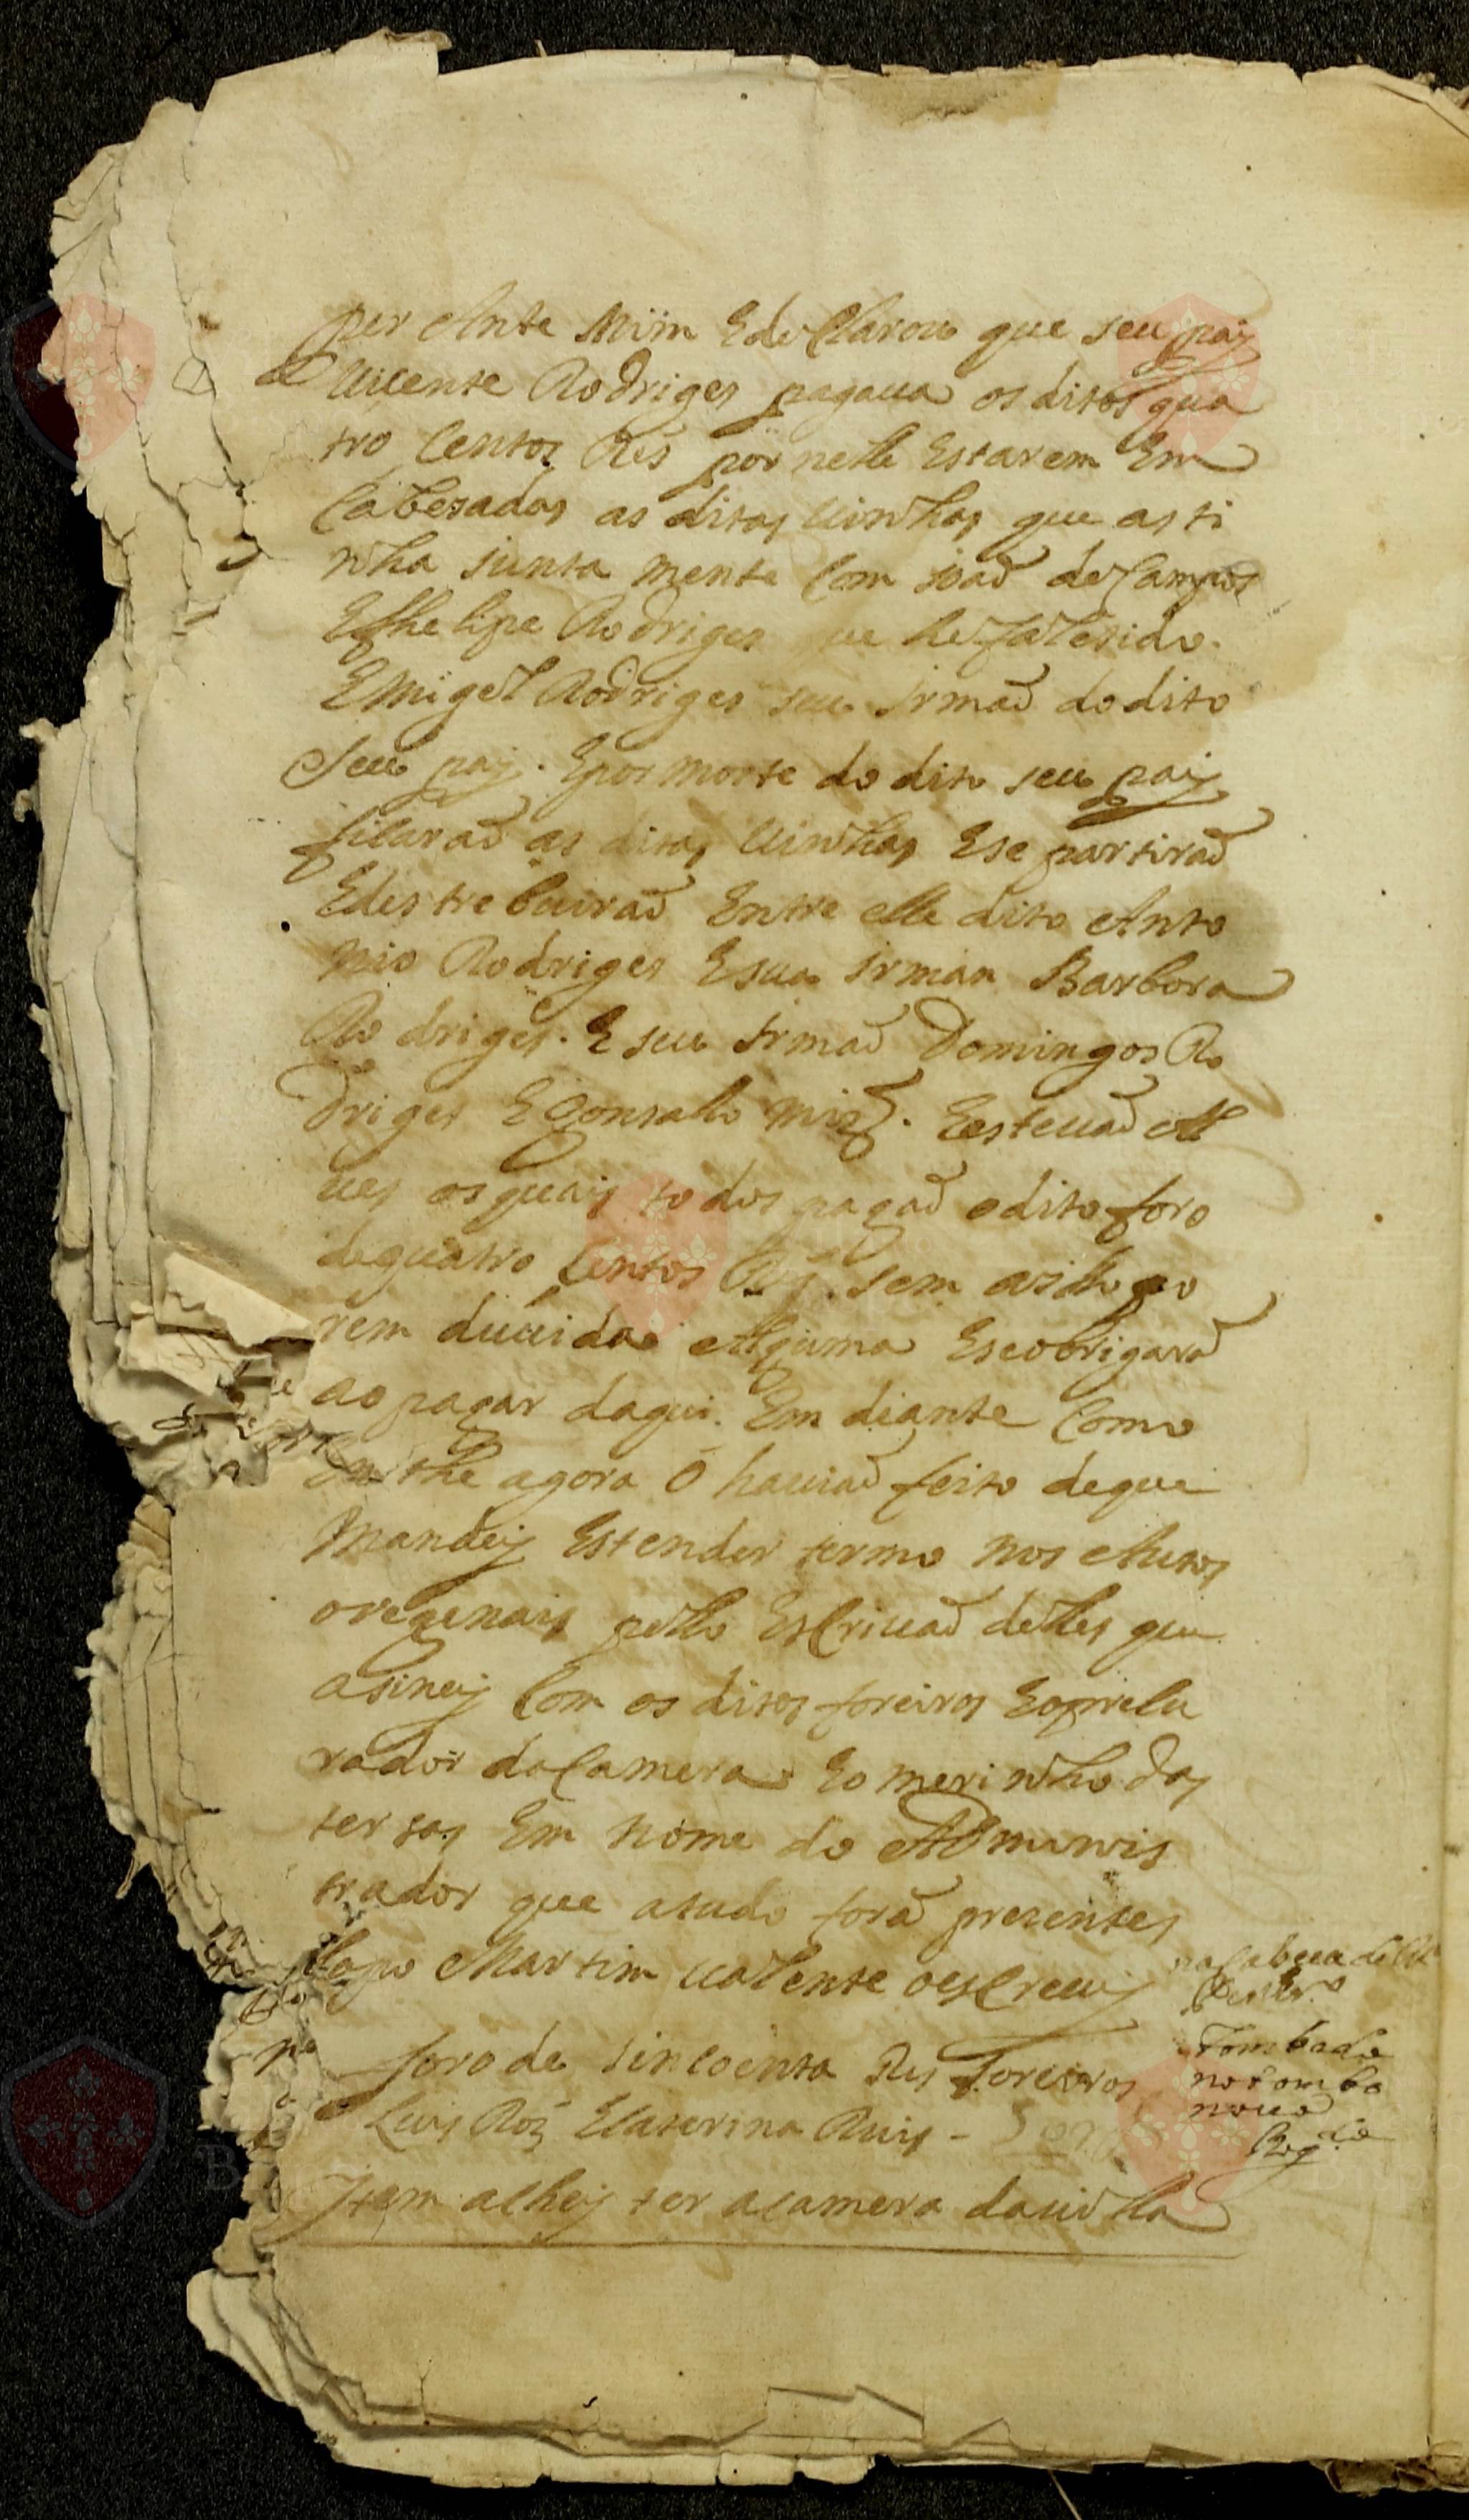 per Ante Mim E declarou que seu paij
Vicente Rodriges pagaua os ditos qua
tro centos Reis por nelle Estarem En
cabesadas as ditas uinhas que as ti
nha junta mente com joaõ de Campos
E Phelipe Rodriges que he falesido.
E Migel Rodriges seu Irmaõ do dito
Seu paij. E por morte do dito seu paij
ficaraõ as ditas uinhas E se partiraõ
E destrebuiraõ Entre elle dito Anto
nio Rodriges E sua Irman Barbora
Rodriges. E seu Irmaõ Domingos Ro
driges E Gonsallo Miz. E esteuaõ Al
ues os quais todos pagaõ o dito foro
de quatro centos Reis. sem a isso po
rem duuida Alguma E se obrigaraõ
ao pagar daqui. Em diante Como
athe agora o hauiaõ feito de que
Mandeij Estender termo nos Autos
oregenais pello Escriuaõ delles que
asineij Com os ditos foreiros E o procu
rador da Camera E o merinho das
tersas Em nome do Administ
trador que a tudo foraõ prezentes
Lopo Martim ualente o escreuij
na Cabeca de
foro de sincoenta Reis Foreiros
Luis Roiz E Caterina Ruis -
Tombado
no tombo
nouo
Reg.do
Item acheij ter a camera da uilla